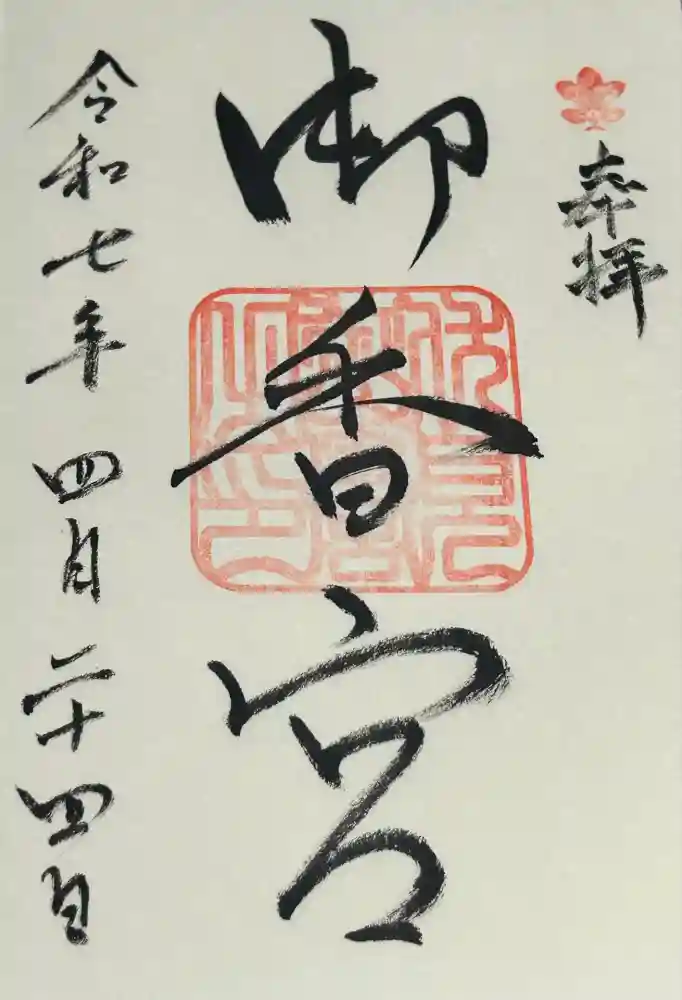 奉拝
御香宮
令和七年四月二十四日